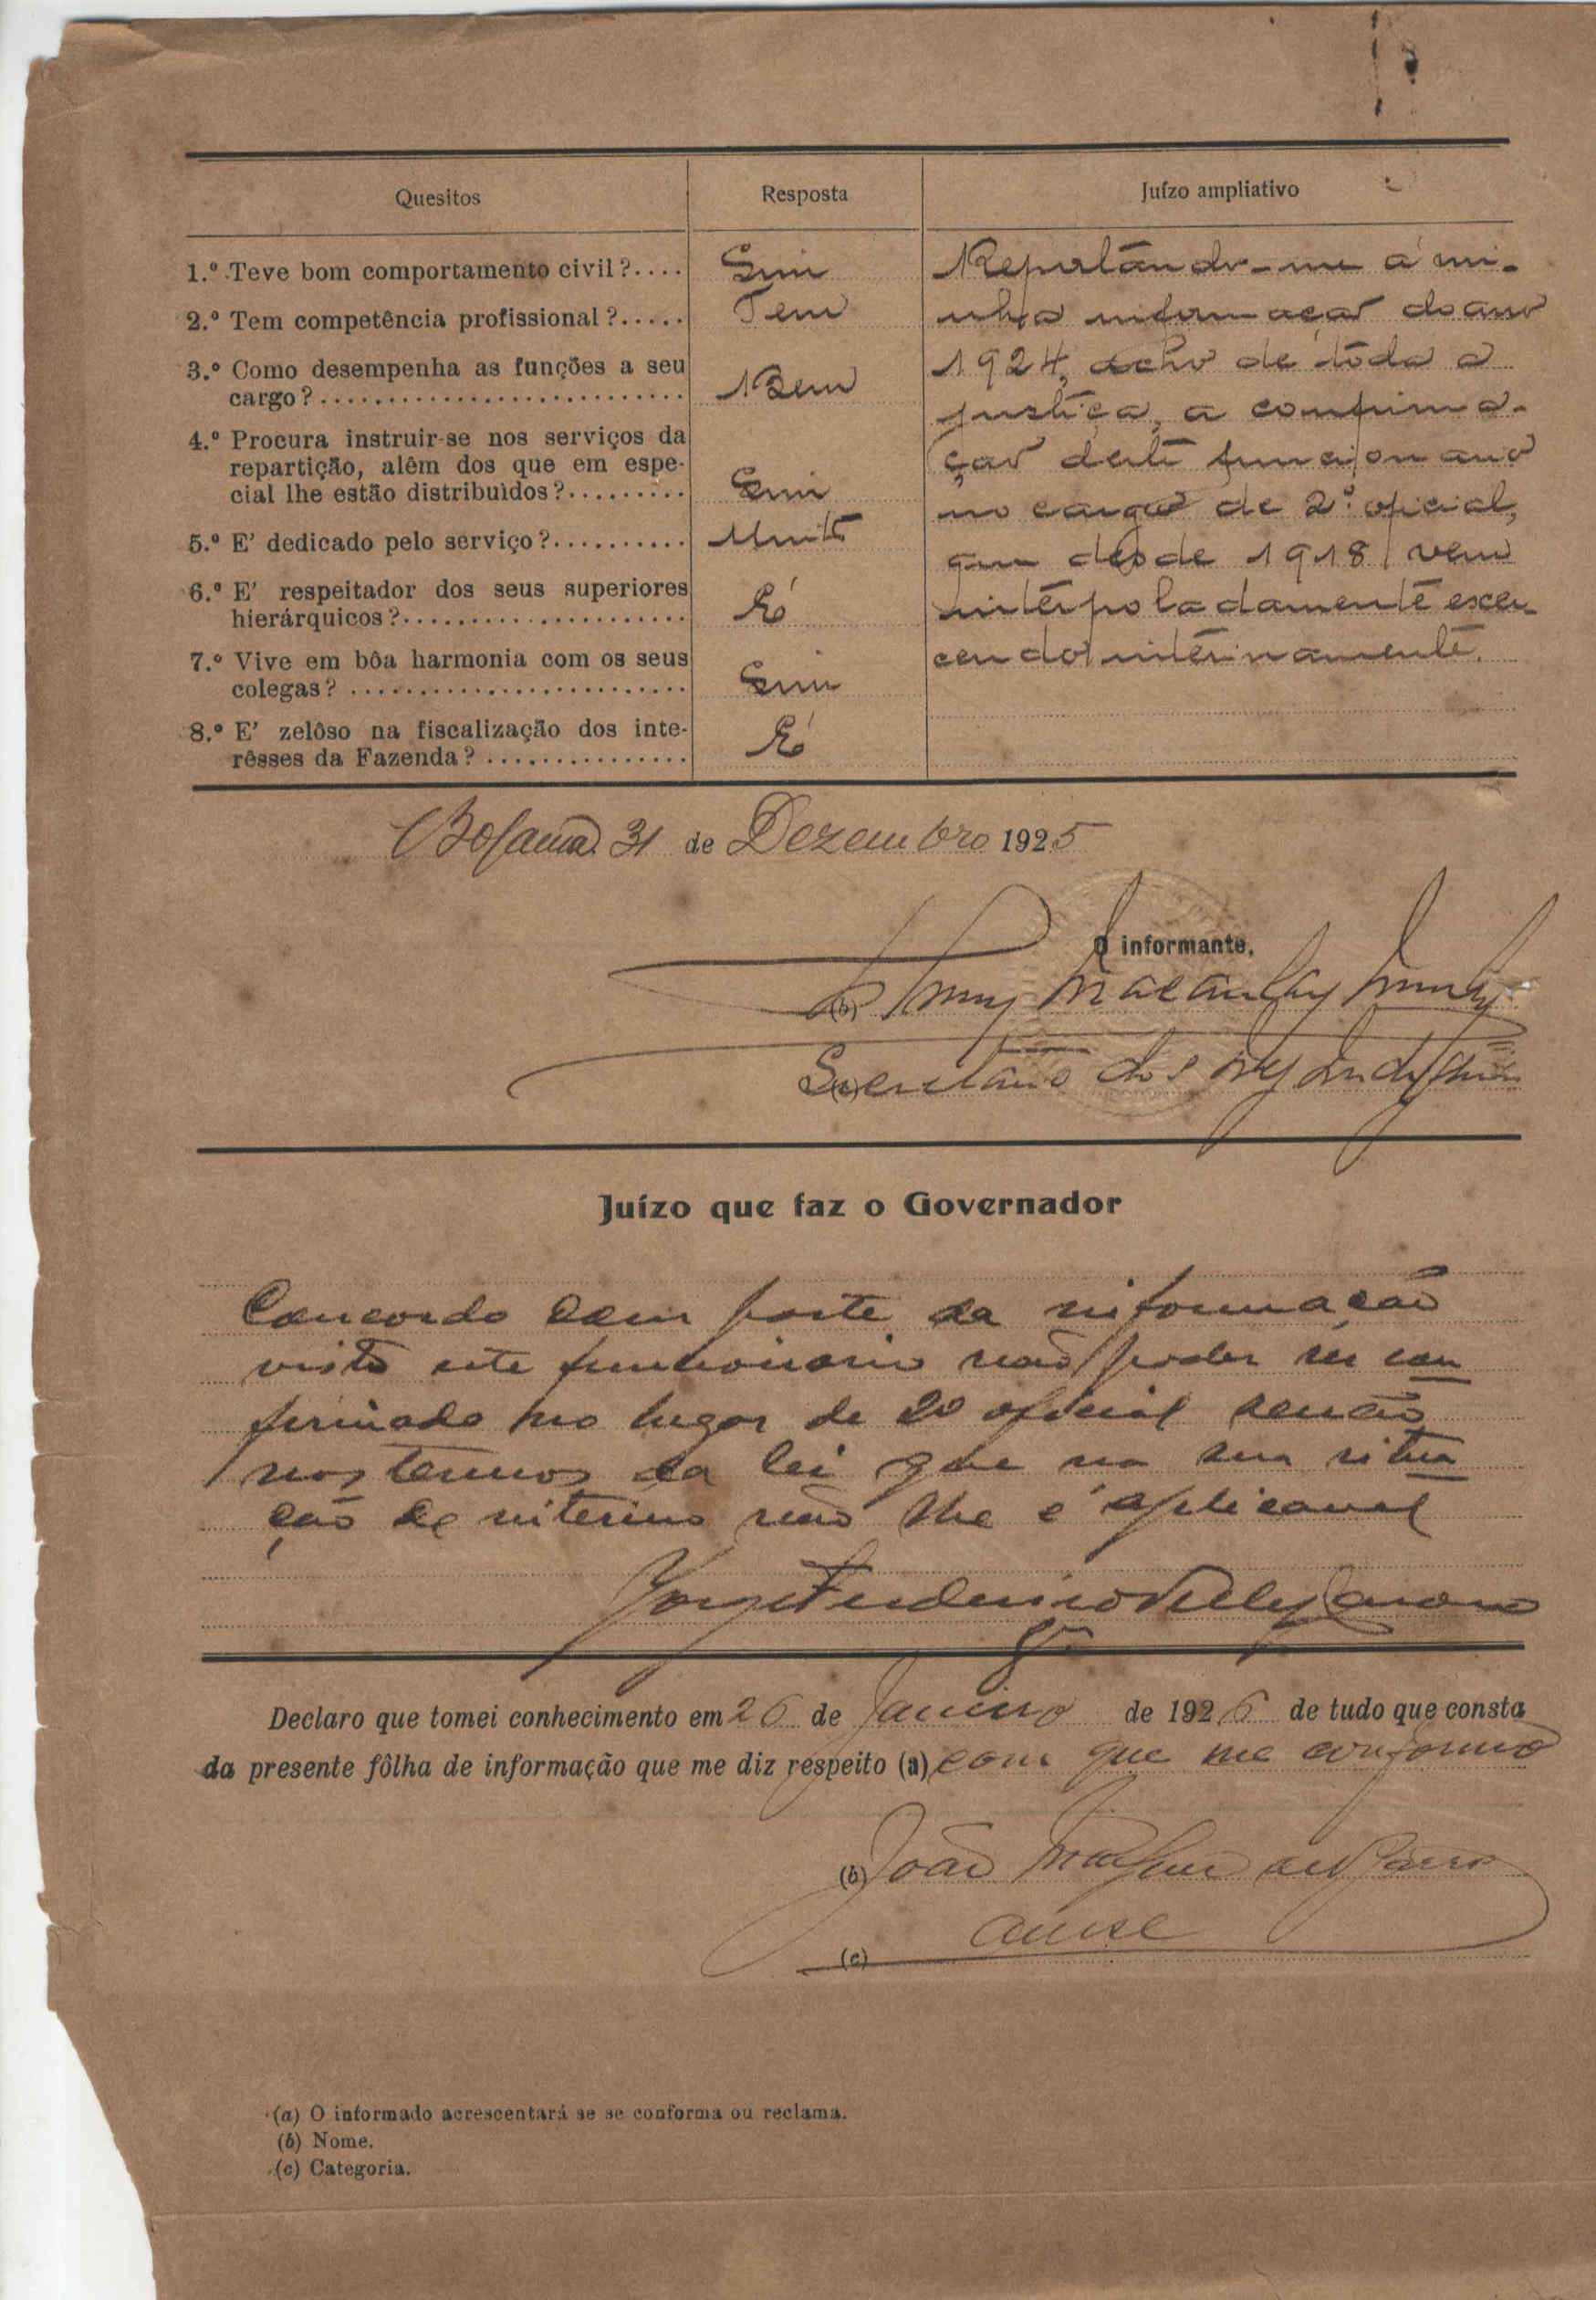 Quesitos Resposta Juízo ampliativo
1.º Teve bom comportamento civil?.... Sim
2.º Tem competência profissional?..... Tem
3.º Como desempenha as funções a seu
cargo?........................... Bem
4.º Procura instruir-se nos serviços da
repartição, alêm dos que em espe-
cial lhe estão distribuìdos?......... Sim
5.º E' dedicado pelo serviço?.......... Muito
6.º E' respeitador dos seus superiores
hierárquicos?...................... É
7.º Vive em bôa harmonia com os seus
colegas? ......................... Sim
8.º E' zelôso na fiscalização dos inte-
rêsses da Fazenda? ............... É
Reportando-me á mi-
nha informação do ano
1924, acho de toda a
justiça, a confirma-
ção deste funcionario
no cargo de 2.º oficial,
que desde 1918 vem
interpoladamente exer-
cendo interinamente.
Bolama 31 de Dezembro 1925
O informante,
(b)
(c) Secretario dos
Juízo que faz o Governador
Concordo com parte da informação
visto este funcionario não poder ser con
firmado no lugar de 2º oficial senão
nos termos da lei que na sua situa
ção de interino não lhe é aplicavel
Jorge Frederico Velez Caroço
Declaro que tomei conhecimento em 26 de Janeiro de 1926 de tudo que consta
da presente fôlha de informação que me diz respeito (a) com que me conformo
(b) João
(c)
(a) O informado acrescentará se se conforma ou reclama.
(b) Nome.
(c) Categoria.